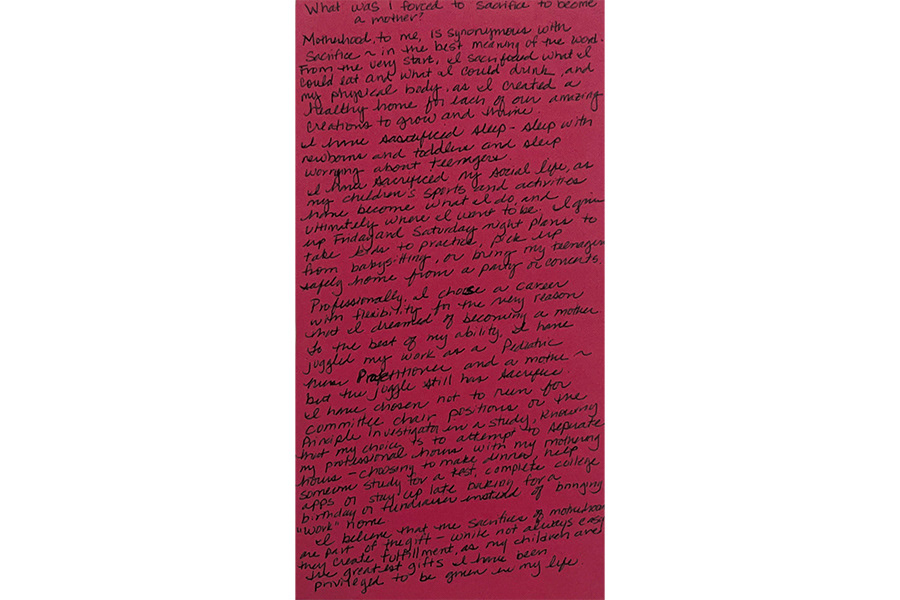 What was I forced to sacrifice to become
a mother?
Motherhood, to me, is synonymous with
sacrifice ~ in the best meaning of the word.
From the very start, I sacrificed what I
could eat and what I could drink, and
my physical body, as I created a
healthy home for each of our amazing
creations to grow and thrive.
I have sacrificed sleep - sleep with
newborns and toddlers and sleep
worrying about teenagers.
I have sacrificed my social life, as
my children's sports and activities
have become what I do, and
ultimately where I want to be. I give
up Friday and Saturday night plans to
take kids to practice, pick up
from babysitting, or bring my teenagers
safely home from a party or concerts.
Professionally, I chose a career
with flexibility for the very reason
that I dreamed of becoming a mother.
To the best of my ability, I have
juggled my work as a Pediatric
Nurse Practitioner and a mother ~
but the juggle still has sacrifice.
I have chosen not to run for
committee chair positions or the
Principle Investigator in a study, knowing
that my choice is to attempt to separate
my professional hours with my mothering
hours - choosing to make dinner, help
someone study for a test, complete college
apps or stay up late baking for a
birthday or fundraiser instead of bringing
"work" home.
I believe that the sacrifices of motherhood
are part of the gift - while not always easy
they create fulfillment, as my children are
the greatest gifts I have been
privileged to be given in my life